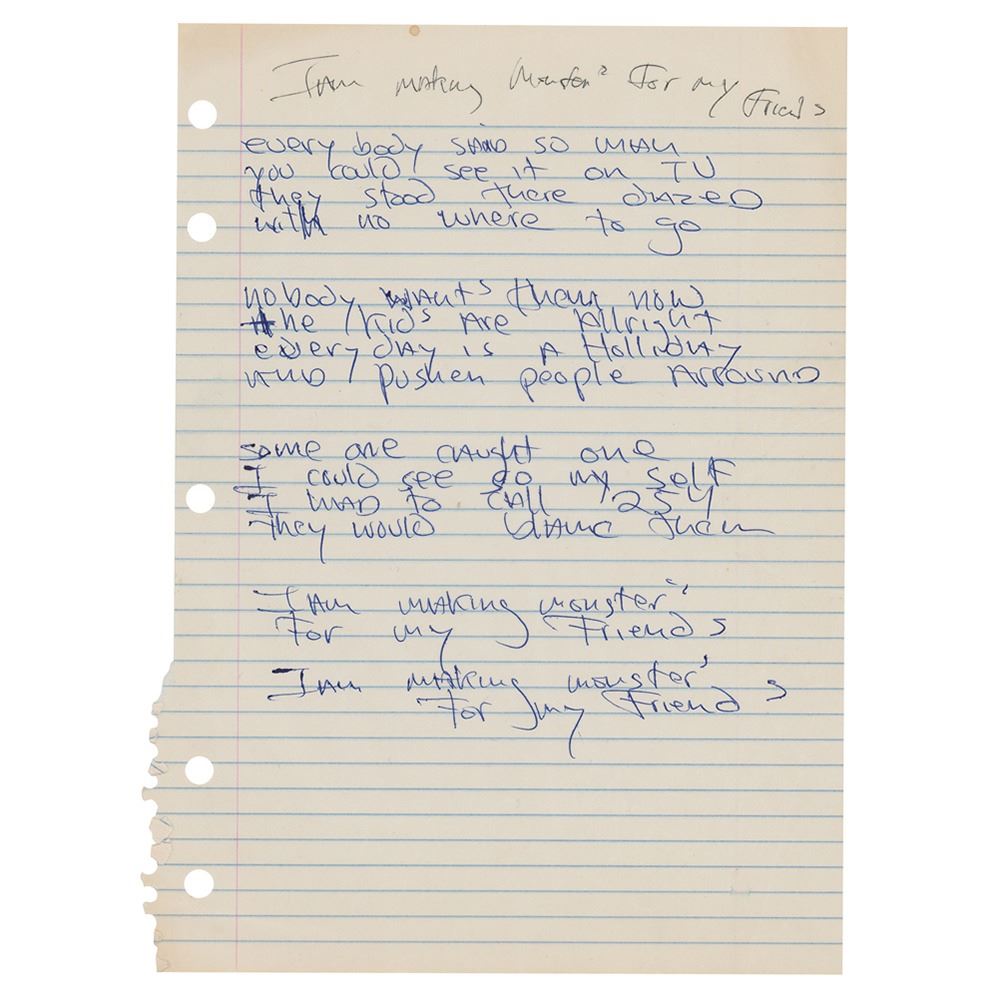 I am making Monster's For my Friends
every body so
you could see it on TV
they stood there dazed
with no where to go
nobody wants them now
the kids are Allright
every day is A Holliday
and pushen people Arround
some one caught one
I could see go my self
I had to call 254
They would blame them
I am making monster's
For my Friends
I am making monster's
For my Friends